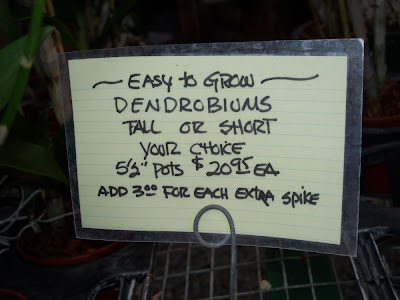 EASY to GROW
DENDROBIUMS
TALL OR SHORT
YOUR CHOICE
5½" POTS $20.95 EA
ADD 3.00 FOR EACH EXTRA SPIKE